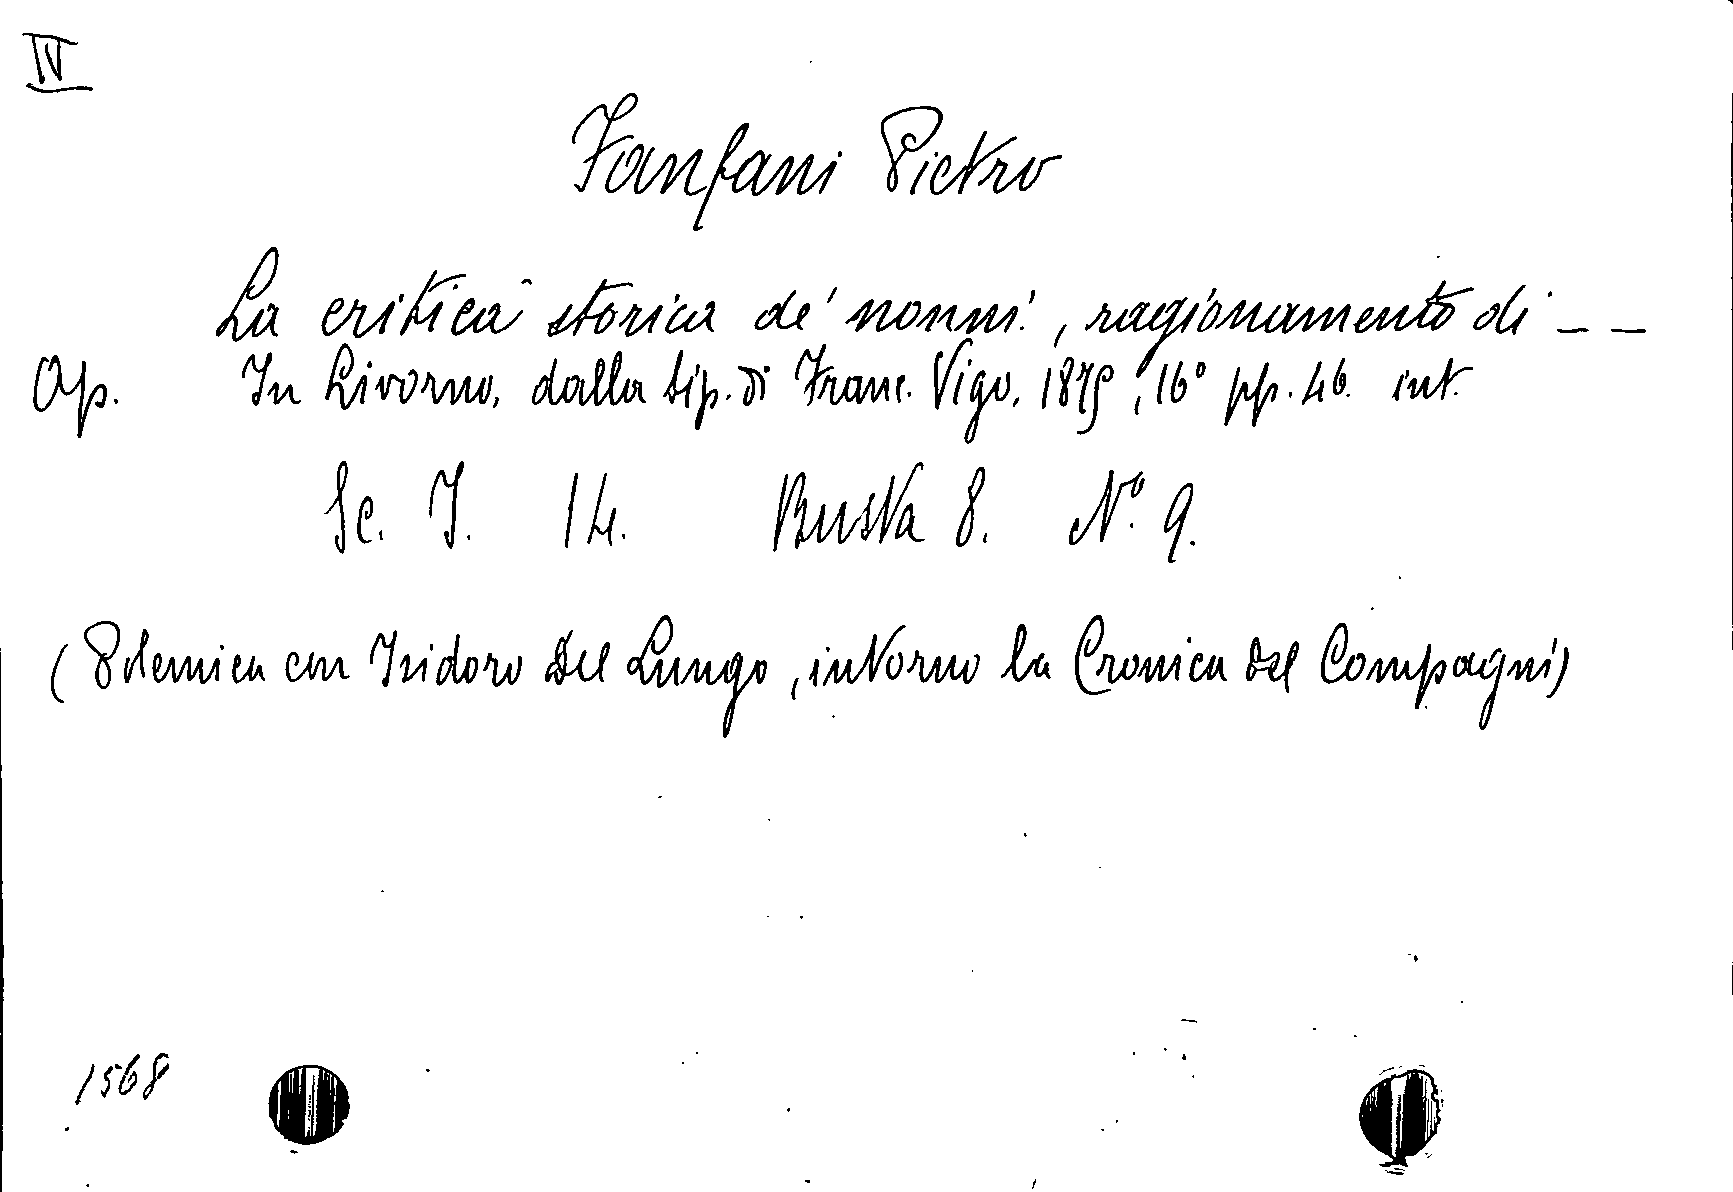 IV
Fanfani Pietro
La critica storica de' nonni, ragionamento di _ _
Op. In Livorno, dalla tip. di Franc. Vigo, 1875, 16° pp. 46. int.
Sc. I. 14. Busta 8. N.° 9.
(Polemica con Isidoro Del Lungo, intorno la Cronica del Compagni)
1568